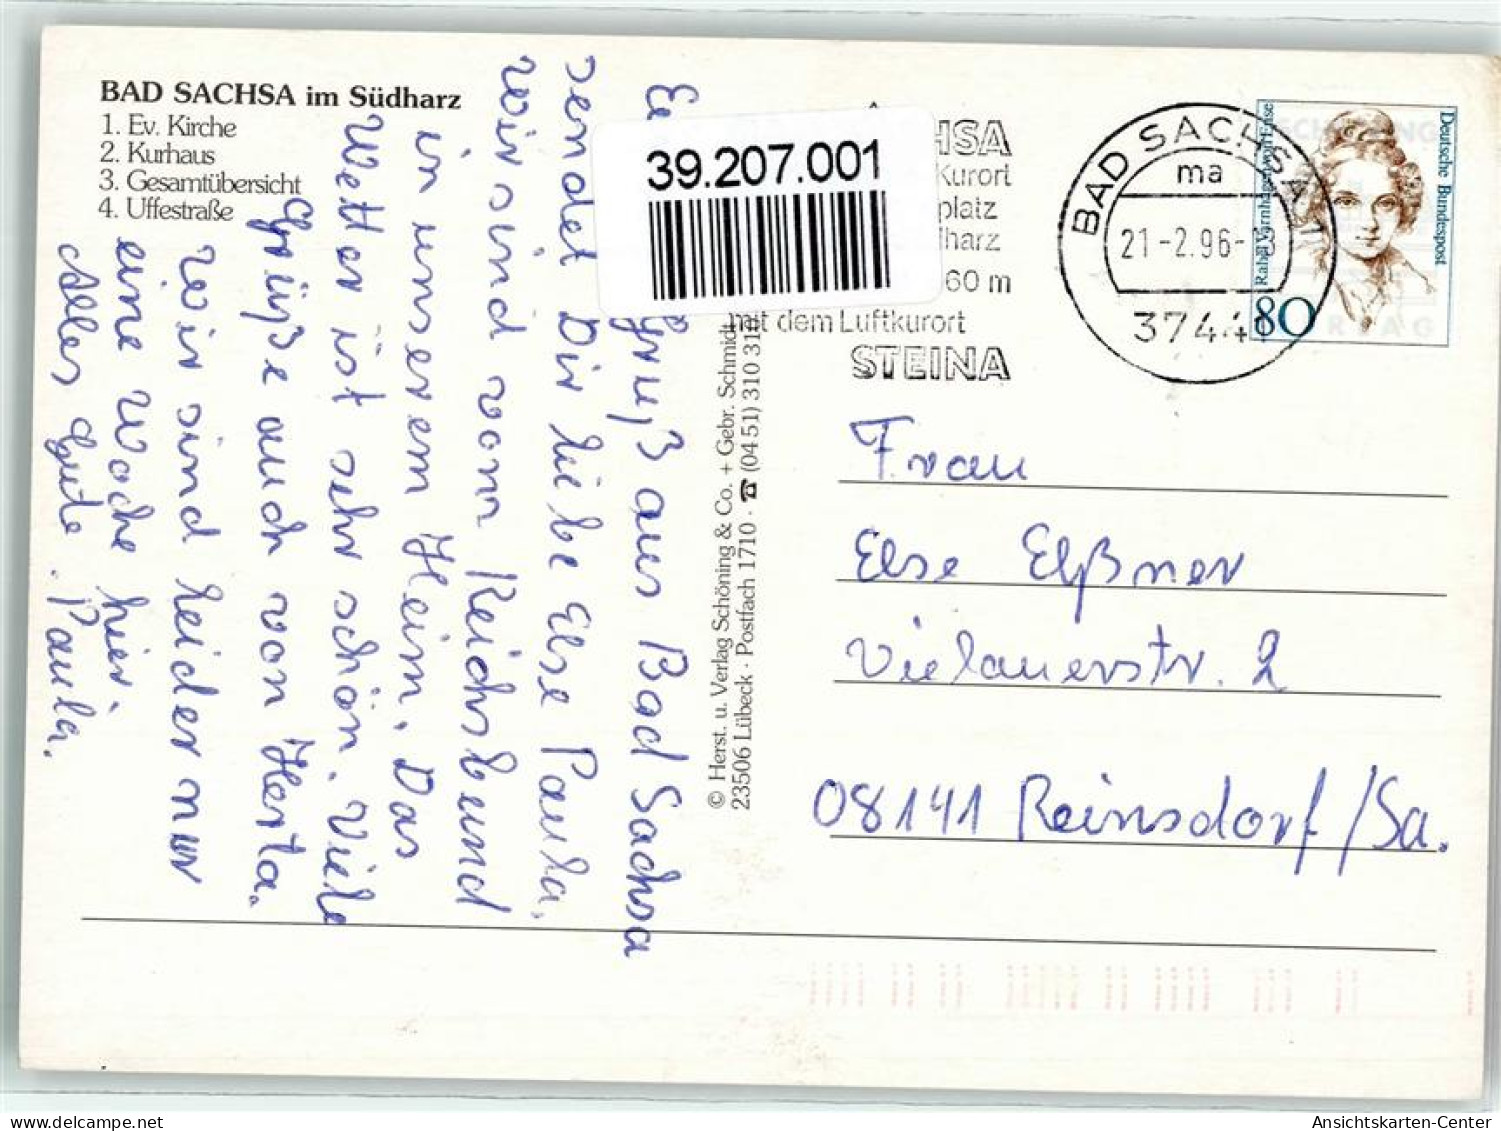 BAD SACHSA im Südharz
1. Ev. Kirche
2. Kurhaus
3. Gesamtübersicht
4. Uffestraße
Gruß aus Bad Sachsa
sendet Dir liebe Else Paula.
Wir sind vom Reichsbund
in unserem Heim. Das
Wetter ist sehr schön. Viele
Grüße auch von Herta.
Wir sind leider nur
eine Woche hier.
Alles Gute. Paula.
39.207.001
© Herst. u. Verlag Schöning & Co. + Gebr. Schmidt
23506 Lübeck · Postfach 1710 · ☎ (04 51) 310 310
HSA
Kurort
platz
harz
60 m
mit dem Luftkurort
STEINA
BAD SACHSA 1
ma
21-2.96-
37441
Deutsche Bundespost
Rahel Varnhagen von Ense
80
Frau
Else Elßner
Vielauerstr. 2
08141 Reinsdorf/Sa.
www.delcampe.net
Ansichtskarten-Center